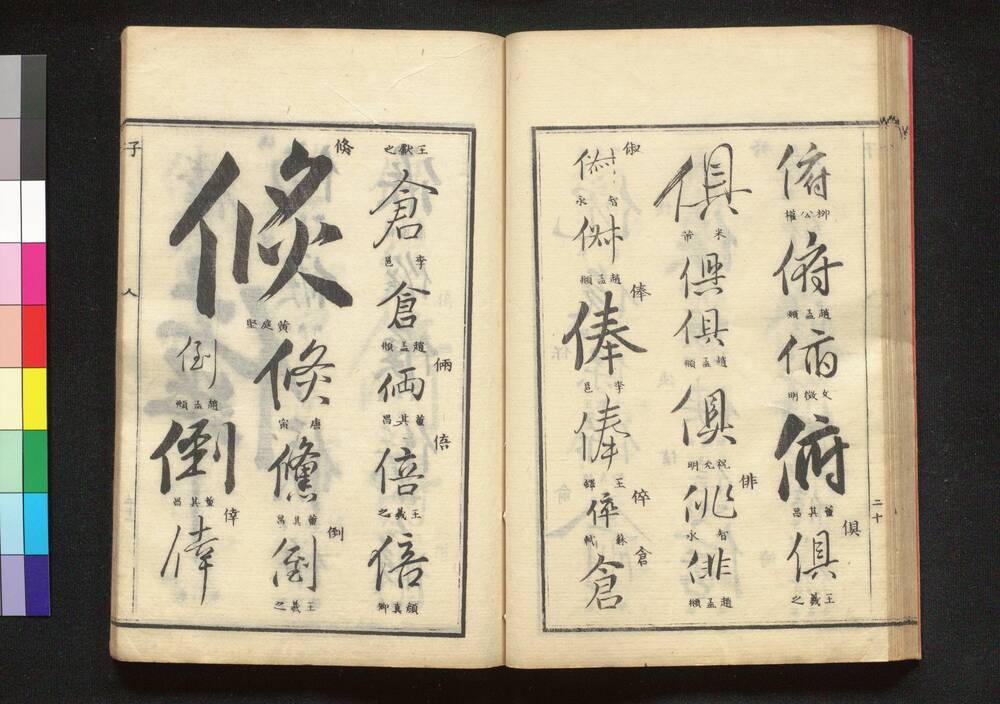 二十
俯
柳公權
俯
趙孟頫
俯
文徴明
俯
董其昌
俱
俱
王羲之
俱
米芾
俱
俱
趙孟頫
俱
祝允明
俳
俳
智永
俳
趙孟頫
俶
智永
趙孟頫
俸
俸
李邕
俸
王鐸
倅
倅
蘇軾
倉
倉
王獻之
倉
李邕
倉
趙孟頫
倆
倆
董其昌
倍
倍
王羲之
倍
顔真卿
倐
倐
黄庭堅
倐
唐寅
儵
董其昌
倒
倒
王羲之
倒
趙孟頫
倒
董其昌
倖
倖
子
人